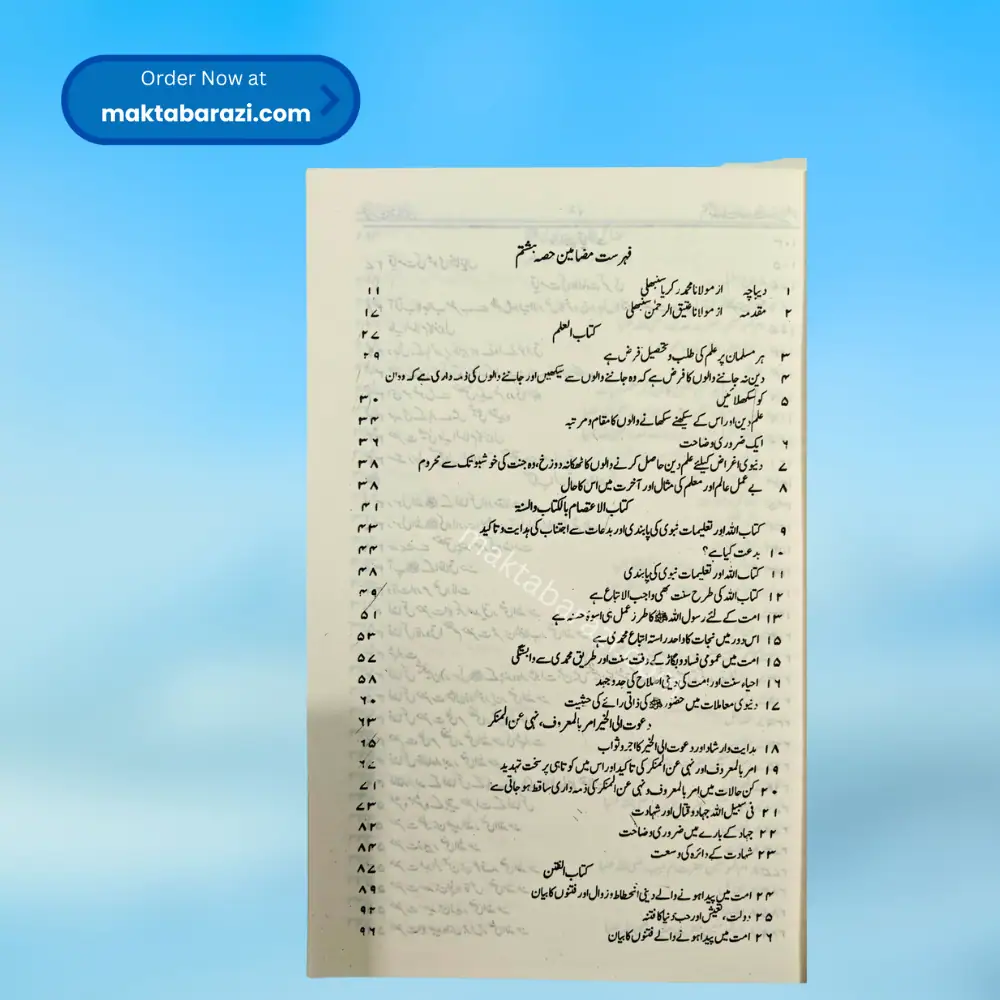 Order Now at
maktabarazi.com
فہرست مضامین حصہ ہشتم
۱ دیباچہ از مولانا محمد زکریا سنبھلی ۱۱
۲ مقدمہ از مولانا عتیق الرحمٰن سنبھلی ۱۷
کتاب العلم ۲۷
۳ ہر مسلمان پر علم کی طلب و تحصیل فرض ہے ۲۹
۴ دین نہ جاننے والوں کا فرض ہے کہ وہ جاننے والوں سے سیکھیں اور جاننے والوں کی ذمہ داری ہے کہ وہ ان
۵ کو سکھلائیں ۳۰
علم دین اور اس کے سیکھنے سکھانے والوں کا مقام و مرتبہ ۳۴
۶ ایک ضروری وضاحت ۳۶
۷ دنیوی اغراض کیلئے علم دین حاصل کرنے والوں کا ٹھکانہ دوزخ، وہ جنت کی خوشبو تک سے محروم ۳۸
۸ بے عمل عالم اور معلم کی مثال اور آخرت میں اس کا حال ۳۸
کتاب الاعتصام بالکتاب والسنۃ ۴۱
۹ کتاب اللہ اور تعلیمات نبوی کی پابندی اور بدعات سے اجتناب کی ہدایت و تاکید ۴۳
۱۰ بدعت کیا ہے؟ ۴۴
۱۱ کتاب اللہ اور تعلیمات نبوی کی پابندی ۴۸
۱۲ کتاب اللہ کی طرح سنت بھی واجب الاتباع ہے ۴۹
۱۳ امت کے لئے رسول اللہ ﷺ کا طرز عمل ہی اسوۂ حسنہ ہے ۵۱
۱۵ اس دور میں نجات کا واحد راستہ اتباع محمدی ہے ۵۳
۱۵ امت میں عمومی فساد و بگاڑ کے وقت سنت اور طریق محمدی سے وابستگی ۵۷
۱۶ احیاء سنت اور امت کی دینی اصلاح کی جدوجہد ۵۸
۱۷ دنیوی معاملات میں حضور ﷺ کی ذاتی رائے کی حیثیت ۶۰
دعوت الی الخیر امر بالمعروف، نہی عن المنکر ۶۳
۱۸ ہدایت و ارشاد اور دعوت الی الخیر کا اجر و ثواب ۶۵
۱۹ امر بالمعروف اور نہی عن المنکر کی تاکید اور اس میں کوتاہی پر سخت تہدید ۶۷
۲۰ کن حالات میں امر بالمعروف و نہی عن المنکر کی ذمہ داری ساقط ہو جاتی ہے ۷۱
۲۱ فی سبیل اللہ جہاد و قتال اور شہادت ۷۳
۲۲ جہاد کے بارے میں ضروری وضاحت ۸۲
۲۳ شہادت کے دائرہ کی وسعت ۸۴
کتاب الفتن ۸۷
۲۴ امت میں پیدا ہونے والے دینی انحطاط و زوال اور فتنوں کا بیان ۸۹
۲۵ دولت، تعیش اور حب دنیا کا فتنہ ۹۲
۲۶ امت میں پیدا ہونے والے فتنوں کا بیان ۹۶